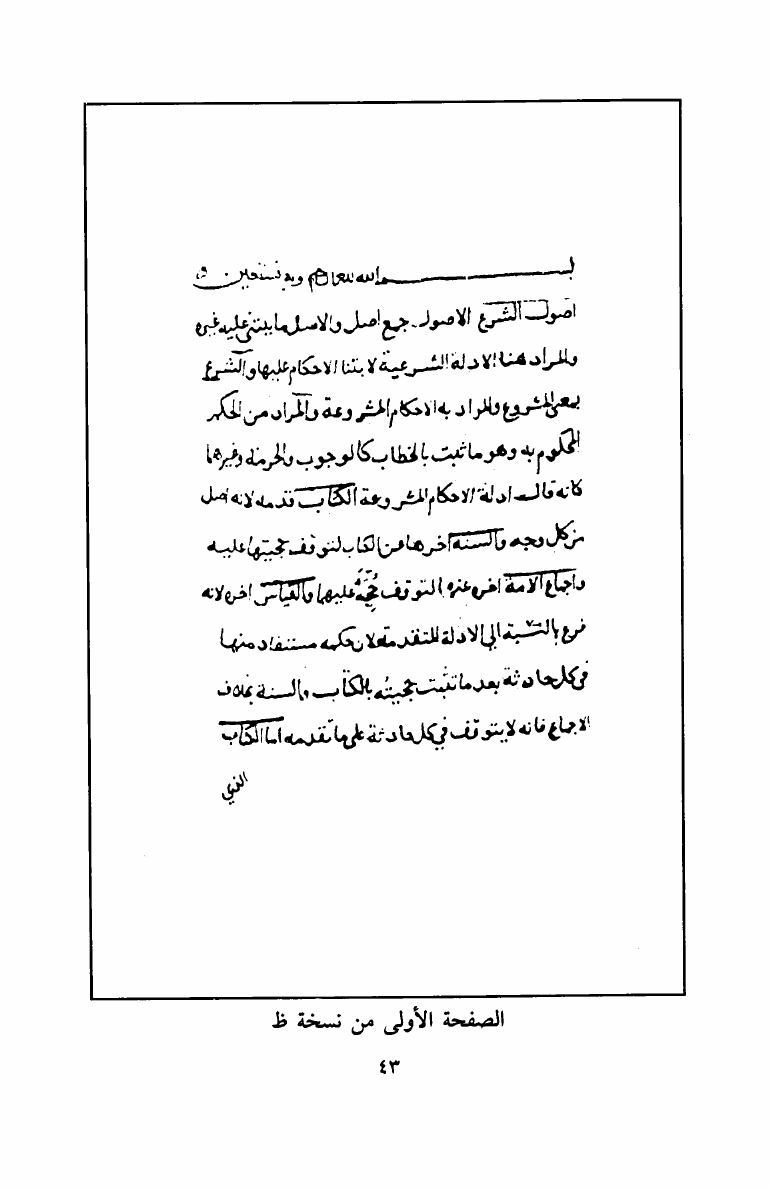 بسم الله الرحمن الرحيم وبه نستعين
اصول الشرع الاصول جمع اصل والاصل ما يبتنى عليه غيره
والمراد هنا الادلة الشرعية لابتنا الاحكام عليها والشرع
بمعنى المشروع والمراد به الاحكام المشروعة والمراد من الحكم
المحكوم به وهو ما ثبت بالخطاب كالوجوب والحرمة وغيرهما
كانه قال ادلة الاحكام المشروعة الكتاب قدمه لانه اصل
من كل وجه والسنه اخرها عن الكتاب لتوقف حجيتها عليه
واجماع الامة اخره عنه التوقف حجيته عليهما والقياس اخره لانه
فرع بالنسبة الى الادلة المتقدمة لان حكمه مستفاد منها
في كل حادثة بعد ما تثبت حجيته بالكتاب والسنة بخلاف
الاجماع فانه لا يتوقف في كل حادثة على ما تقدمه اما الكتاب
الذي
الصفحة الأولى من نسخة ظ
٤٣